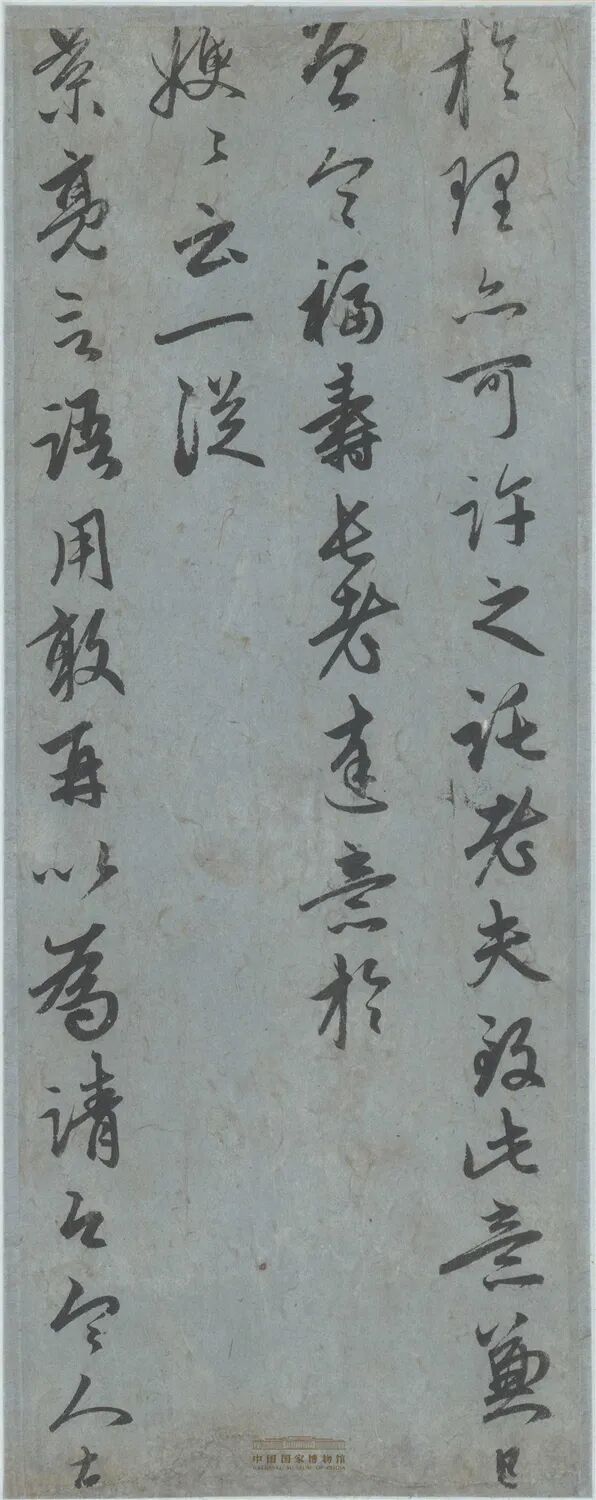 於理亦可许之託老夫致此意兼已
曾令福壽長老達意於
嫂〻云一從
榮亮言語用敢再以為請乞令人古
中国国家博物馆
NATIONAL MUSEUM OF CHINA